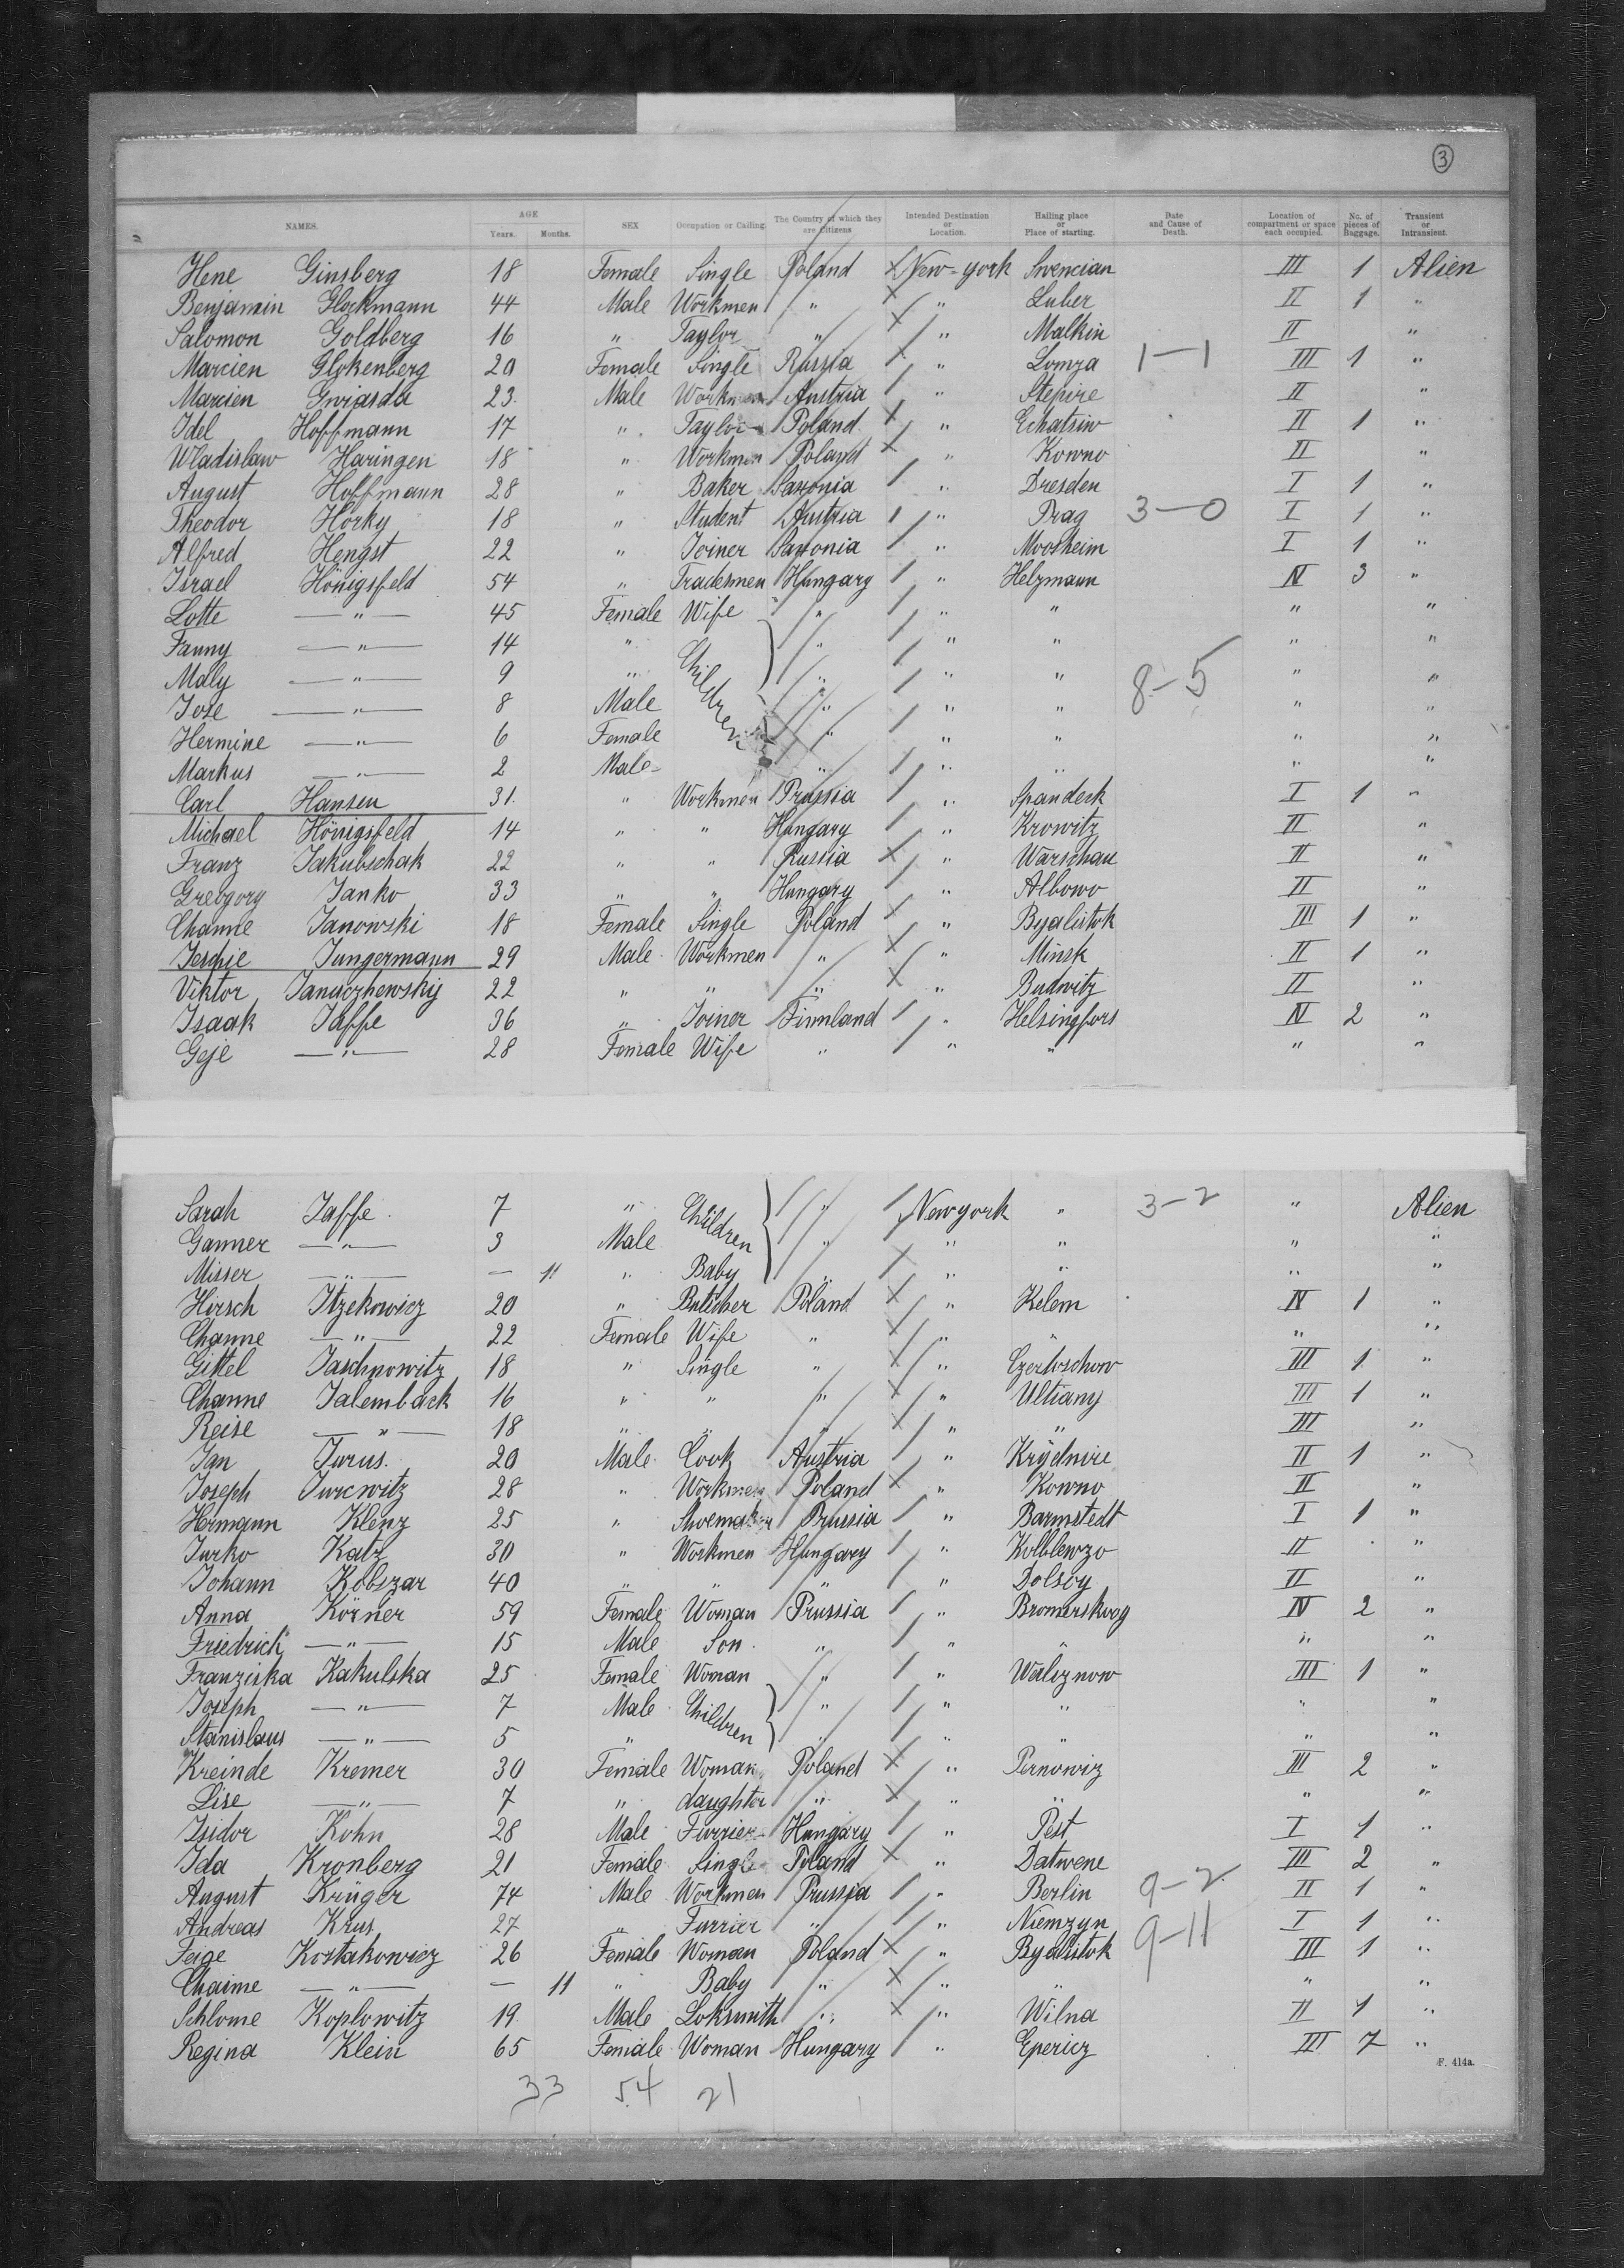 3
NAMES. AGE Years. Months. SEX Occupation or Calling. The Country of which they are Citizens Intended Destination or Location. Hailing place or Place of starting. Date and Cause of Death. Location of compartment or space each occupied. No. of pieces of Baggage. Transient or Intransient.
Hene Ginsberg 18 Female Single Poland New-york Swencian III 1 Alien
Benjamin Glockmann 44 Male Workmen " " Luber II 1 "
Salomon Goldberg 16 " Taylor " " Malkin II "
Marcien Glokenberg 20 Female Single Russia " Lomza 1-1 III 1 "
Marcien Gwiasda 23. Male Workmen Austria " Stepire II "
Idel Hoffmann 17 " Taylor Poland " Echatsiw II 1 "
Wladislaw Haringen 18 " Workmen Poland " Kowno II "
August Hoffmann 28 " Baker Saxonia " Dresden I 1 "
Theodor Horky 18 " Student Austria " Prag 3-0 I 1 "
Alfred Hengst 22 " Joiner Saxonia " Moosheim I 1 "
Israel Hönigsfeld 54 " Tradesmen Hungary " Helzmann IV 3 "
Lotte —"— 45 Female Wife " " " " "
Fanny —"— 14 " Children " " " " "
Maly —"— 9 " " " " 8-5 " "
Jose —"— 8 Male " " " " "
Hermine —"— 6 Female " " " " "
Markus —"— 2 Male " " " " "
Carl Hansen 31. " Workmen Prussia " Spandeck I 1 "
Michael Hönigsfeld 14 " " Hungary " Krowitz II "
Franz Jakubschak 22 " " Russia " Warschau II "
Gregory Janko 33 " " Hungary " Albowo II "
Channe Janowski 18 Female Single Poland " Byalistok III 1 "
Jeschie Jungermann 29 Male Workmen " " Minsk II 1 "
Viktor Janaczhewskij 22 " " " " Budwitz II "
Isaak Jaffe 36 " Joiner Finnland " Helsingfors IV 2 "
Geje —"— 28 Female Wife " " " " "
Sarah Jaffe 7 " Children " Newyork " 3-2 " Alien
Ganner —"— 3 Male " " " " "
Misser —"— — 11 " Baby " " " " "
Hirsch Itzekowicz 20 " Butcher Poland " Kelem IV 1 "
Channe —"— 22 Female Wife " " " "
Gittel Jaschnowitz 18 " Single " " Czertoschow III 1 "
Channe Jalemback 16 " " " " Ultiany III 1 "
Reise —"— 18 " " " " " III "
Jan Jurus. 20 Male Cook Austria " Krydnire II 1 "
Joseph Jurcwitz 28 " Workmen Poland " Kowno II "
Hermann Klenz 25 " Shoemaker Prussia " Barmstedt I 1 "
Jurko Katz 30 " Workmen Hungary " Kolblewzo II "
Johann Kobszar 40 " " " " Dolsoy II "
Anna Körner 59 Female Woman Prussia " Bromerskoog IV 2 "
Friedrich —"— 15 Male Son " " " " "
Franziska Kakulska 25 Female Woman " " Waloznow III 1 "
Joseph —"— 7 Male Children " " " " "
Stanislaus —"— 5 " " " " " "
Kreinde Kremer 30 Female Woman Poland " Pernowiz III 2 "
Lise —"— 7 " daughter " " " " "
Isidor Kohn 28 Male Furrier Hungary " Pest I 1 "
Ida Kronberg 21 Female Single Poland " Datwene III 2 "
August Krüger 74 Male Workmen Prussia " Berlin 9-2 II 1 "
Andreas Krus 27 " Furrier " " Niemzyn 9-11 I 1 "
Feige Kostakowicz 26 Female Woman Poland " Byalistok III 1 "
Chaime —"— — 11 " Baby " " " " "
Schlome Koplowitz 19. Male Loksmith " " Wilna II 1 "
Regina Klein 65 Female Woman Hungary " Epericz III 7 "
F. 414a.
33 54 21